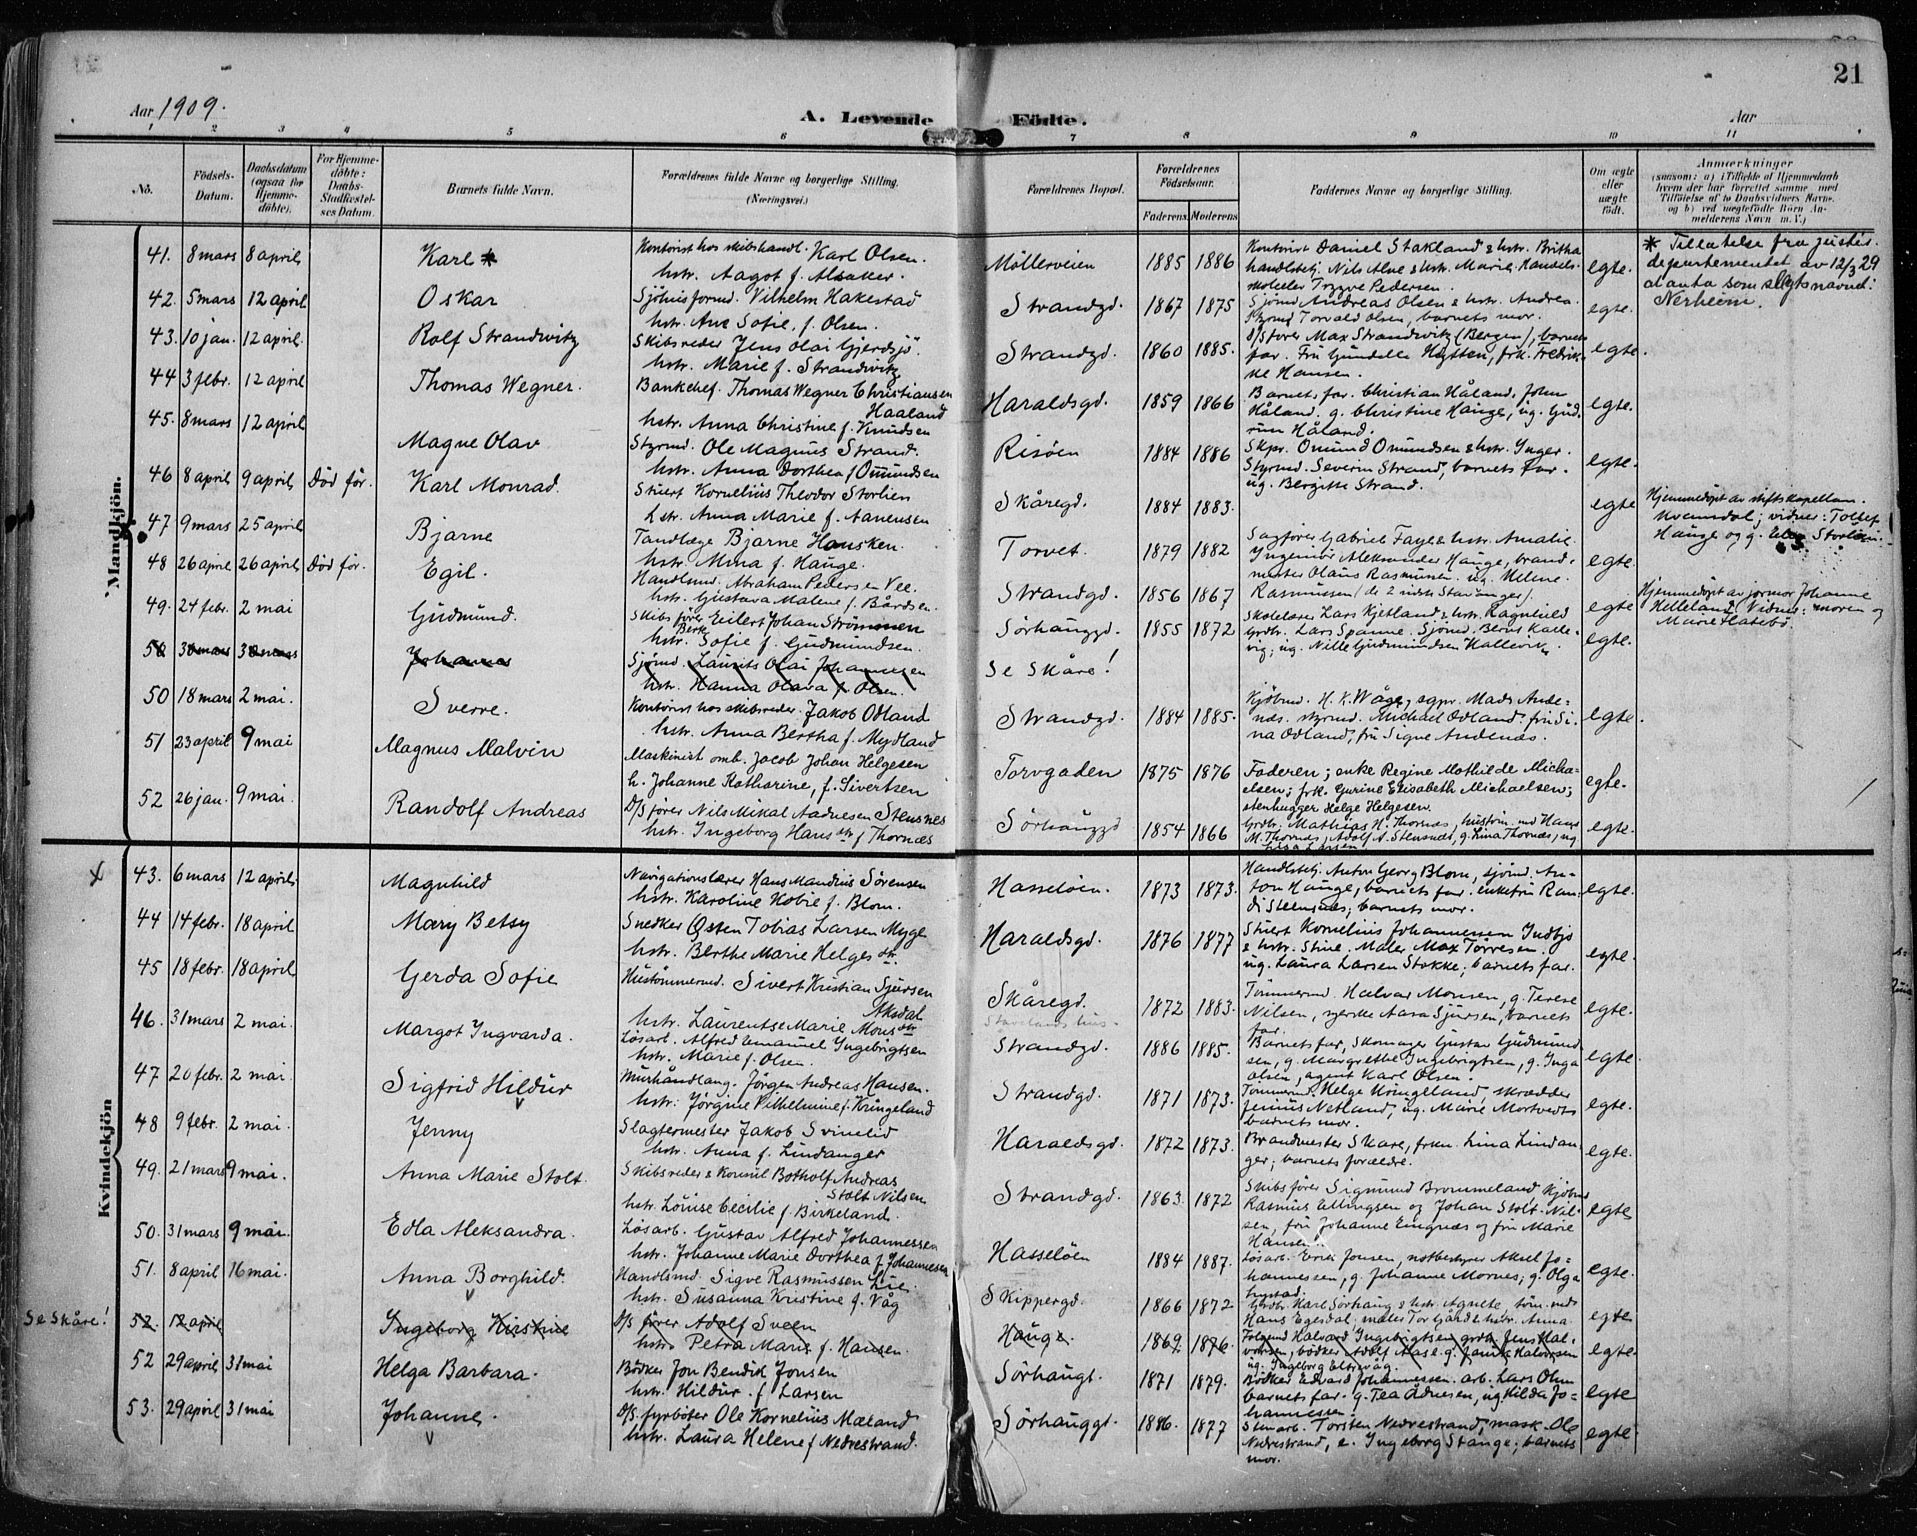 21
Aar 1909.
A. Levende Födte.
Aar
1 2 3 4 5 6 7 8 9 10 11
No.
Födsels-Datum.
Daabsdatum (ogsaa for Hjemme-döbte).
For Hjemme-döbte: Daabs-Stadfæstel-ses Datum.
Barnets fulde Navn.
Forældrenes fulde Navne og borgerlige Stilling. (Næringsvei.)
Forældrenes Bopæl.
Forældrenes Födselsaar.
Faderens. Moderens
Faddernes Navne og borgerlige Stilling.
Om ægte eller uægte födt.
Anmærkninger
(saasom: a) i Tilfælde af Hjemmedaab
hvem der har forrettet samme med
Tilföielse af to Daabsvidners Navne.
og b) ved uægtefödte Börn An-
melderens Navn m. V.)
Mandkjön.
41. 8 mars 8 april Karl *
Kontorist hos skibshandl. Karl Olsen.
hstr. Aagot f. Alsaker.
Möllerveien 1885 1886
Kontorist Daniel Stakland & hstr. Britha
handlsbetj. Nils Alne & hstr. Marie. Handels-
Trygve Pedersen.
egte.
* Tillatelse fra justis-
departementet av 12/3 29
at anta som slegtsnavnet:
Nerheim.
42. 5 mars 12 april Oskar
Vilhelm Hakestad
hstr. Ane Sofie, f. Olsen.
Strandgd. 1867 1875
Sjömd Andreas Olsen & hstr. Andrea.
Styrmd Torvald Olsen, barnets mor.
egte.
43. 10 jan. 12 april. Rolf Strandwitz
Skibsreder Jens Olai Gjerdsjö.
hstr. Marie f. Strandwitz
Strandgd. 1860 1885.
D/S förer Max Strandwitz (Bergen), barnets
far. Fru Gundelle Hytten, frk. Fredrik-
ke Hansen.
egte.
44 3 febr. 12 april Thomas Wegner.
Bankchef. Thomas Wegner Christiansen
Haaland
hstr. Anna Christine f. Knudsen
Haraldsgd. 1859 1866
Barnets far. Christian Håland. John
Håland. g. Christine Hauge, ug. Gud-
run Håland.
egte.
45. 8 mars 12 april Magne Olav
Styrmd. Ole Magnus Strand.
hstr. Anna Dorthea f Omundsen
Risöen 1884 1886
Skpr. Omund Omundsen & hstr. Inger.
Styrmd. Severin Strand, barnets far.
ug. Bergitte Strand.
egte.
46 8 april 9 april Död för. Karl Monrad.
Stuert Kornelius Theodor Storlien
hstr. Anna Marie f. Aanensen
Skåregd. 1884 1883.
egte
Hjemmedöpt av stiftskapellan
Kvamdal; vidner: Tollef
Hauge og g. Storlien.
47 9 mars 25 april Bjarne
Tandlæge Bjarne Hansken.
hstr. Mina f. Hauge.
Torvet. 1879 1882
Sagförer Gabriel Faye & hstr. Amalie.
Ingeniör Aleksander Hauge, brand-
mester Olaus Rasmusen. ug. Helene
Rasmussen (de 2 sidste Stavanger).
egte.
48 26 april 26 april Död för. Egil.
Handlsmd. Abraham Pedersen Vee.
hstr. Gustava Malene f. Bårdsen.
Strandgd 1856 1867
egte
Hjemmedöpt av jormor Johanne
Helleland. Vidner: moren og
Marie Hatebö.
49. 24 febr. 2 mai Gudmund.
Skibsförer Eilert Johan Strömmen
hstr. Berte Sofie f. Gudmundsen.
Sörhauggd. 1855 1872
Skolelærer Lars Kjetland & hstr. Ragnhild
Grdbr. Lars Spanne. Sjömd. Berns Kalle-
vig; ug. Nille Gudmundsen Kallevik.
egte.
50 30 mars 30 mars Johannes
Sjömd. Laurits Olai Johannesen
hstr. Hanna Olava f. Olsen.
Se Skåre!
50 18 mars 2 mai. Sverre.
Kontorist hos skibsreder. Jakob Odland
hstr. Anna Bertha f. Mydland
Strandgd. 1884 1885.
Kjöbmd. H. K. Våge, sgpr. Mads Ande-
næs. styrmd. Michael Odland, fru Si-
na Odland, fru Signe Andenæs.
egte.
51 23 april 9 mai Magnus Malvin
Maskinist omb. Jacob Johan Helgesen
h. Johanne Katharine, f. Sivertsen
Torvgaden 1875 1876
Faderen; enke Regine Mathilde Micha-
elsen; frk. Gurine Elisabeth Michaelsen;
stenhugger Helge Helgesen.
egte.
52 26 jan. 9 mai. Randolf Andreas
D/S förer Nils Mikal Aadnesen Stensnes
hstr. Ingeborg Hansdtr f Thornæs
Sörhauggd 1854 1866
Grdbr. Mathias H. Thornæs, hustru
M. Thornæs, Adolf A. Stensnæs, g. Lina Thornæs, ug
Lisa Larsen.
egte.
Kvindekjön
43. 6 mars 12 april. Magnhild
Navigationslærer Hans Mandius Sörensen
hstr. Karoline Kobie f. Blom.
Hasselöen. 1873 1873.
Handlsbetj. Anton Georg Blom, sjömd. An-
ton Hauge, barnets far. enkefru Ran-
di Steensnæs; barnets mor.
egte.
44 14 febr. 18 april Mary Betsy
Snedker Östen Tobias Larsen Myge
hstr. Berthe Marie Helgesdtr.
Haraldsgd. 1876 1877
Stuert Kornelius Johannessen Indbjo
& hstr. Stine. Maler Max Törresen.
ug. Laura Larsen Stokke; barnets far.
egte.
45 18 febr. 18 april Gerda Sofie
Hustömmermd. Sivert Kristian Sjursen
Aksdal
hstr. Laurentse Marie Monsdtr
Skåregd. 1872 1883.
Tömmermd. Halvar Monsen, g. Terese
Nilsen, Aasa Sjursen, barnets
far.
egte.
46. 31 mars 2 mai. Margot Ingvarda.
Lösarb. Alfred Emanuel Ingebrigtsen
hstr. Marie f. Olsen
Strandgd. 1886 1885.
Barnets far, Skomager Gustav Gudmund-
sen, g. Margrethe Ingebrigtsen, g. Inga
Olsen, agent Karl Olsen.
egte.
47 20 febr. 2 mai Sigfrid Hildur
Murhåndlang. Jörgen Andreas Hansen.
hstr. Jörgine Vilhelmine f. Kringeland
Strandgd. 1871 1873.
Tömmermd. Helge Kringeland, skrædder
Jenius Netland, ug. Marie Mortvedt
barnets mor.
egte.
48 9 febr. 2 mai. Jenny
Slagtermester Jakob Svinelid
hstr. Anna f. Lindanger
Haraldsgd. 1872 1873.
Brandmester Skare, frkn. Lina Lindan-
ger; barnets forældre.
egte.
49. 21 mars 9 mai. Anna Marie Stolt.
Skibsreder & konsul Botholf Andreas
Stolt Nilsen
hstr. Louise Cecilie f. Birkeland.
Strandgd. 1863. 1872
Skibsförer Sigmund Brommeland kjöbmd
Rasmus Ellingsen og Johan Stolt-Nil-
sen, fru Johanne Emgnæs og fru Marie
Hansen.
egte
50. 31 mars 9 mai. Edla Aleksandra.
Lösarb. Gustav Alfred Johannessen
hstr. Johanne Marie Dorthea f Johannesen
Hasselöen 1884 1887.
Lösarb. Erik Jonsen, notbestyrer Aksel Jo-
hannessen, g. Johanne Mornes; g. Olga
Lystad.
egte.
51. 8 april 16 mai. Anna Borghild.
Handlsmd. Sigve Rasmussen Lie.
hstr. Susanna Kristine f. Våg
Skippergd. 1866 1872
Grdbr. Karl Sörhaug & hstr. Agnete, töm.md.
Hans Egesdal; maler Tor Gård & hstr. Anna.
egte
Se Skåre!
52. 12 april Ingeborg Kirstine
D/S förer Adolf Sveen
hstr. Petra Marie f. Hansen.
Hauge. 1869 1876.
Halvard Ingebrigtsen grdb. Jens Hal-
vorsen, bödker Adolf Aase g. Halvorsen
ug. Ingeborg Eltrevåg.
egte.
52 29 april 31 mai Helga Barbara.
Bödker Jon Bendik Jonsen
hstr. Hildur. f Larsen
Sörhaugt. 1871 1879.
Bödker Edvard Johannessen. arb. Lars Olsen
barnets far. g. Tea Ådnesen, ug. Hilda Jo-
hannessen.
egte
53. 29 april 31 mai Johanne.
D/S fyrböter Ole Kornelius Mæland
hstr. Laura Helene f Nedrestrand.
Sörhauggt. 1886. 1877
Stenarb. Torsten Nedrestrand, mask. Ole
Nedrestrand, e. Ingeborg Stange; barnets
mor.
egte.